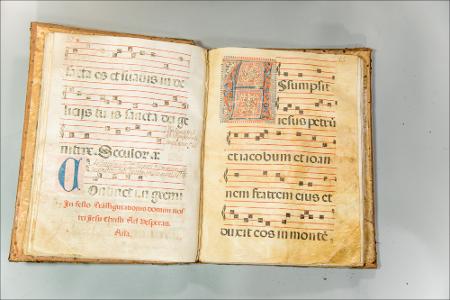 facta es et suavis in de
licijs tuis sancta dei ge
nitrix. Seculor a:
Continet in gremi
In festo Transfigurationis domini nos
tri Jesu Christi Ad Vesperas.
Aña.
Assumpsit
iesus petrũ
et iacobum et ioan
nem fratrem eius et
duxit eos in montẽ